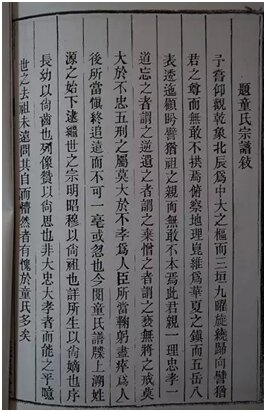 題童氏宗譜敍
予嘗仰觀乾象北辰為中天之樞而三垣九曜旋繞歸向譬猶
君之尊而無敢不拱焉俯察地理崑崙為華夏之鎮而五岳八
表逶迤顧盻譬猶祖之親而無敢不本焉此君親一理忠孝一
道忘之者謂之逆遺之者謂之棄慢之者謂之褻無將之戒莫
大於不忠五刑之屬莫大於不孝為人臣所當鞠躬盡瘁為人
後所當愼終追遠而不可一毫或忽也今閱童氏譜牒上溯姓
源之始下逮繼世之宗明昭穆以尙祖也詳所生以尙嫡也序
長幼以尙齒也列像贊以尙思也非大忠大孝者而能之乎噫
世之去祖未遠問其自而懵然者有愧於童氏多矣